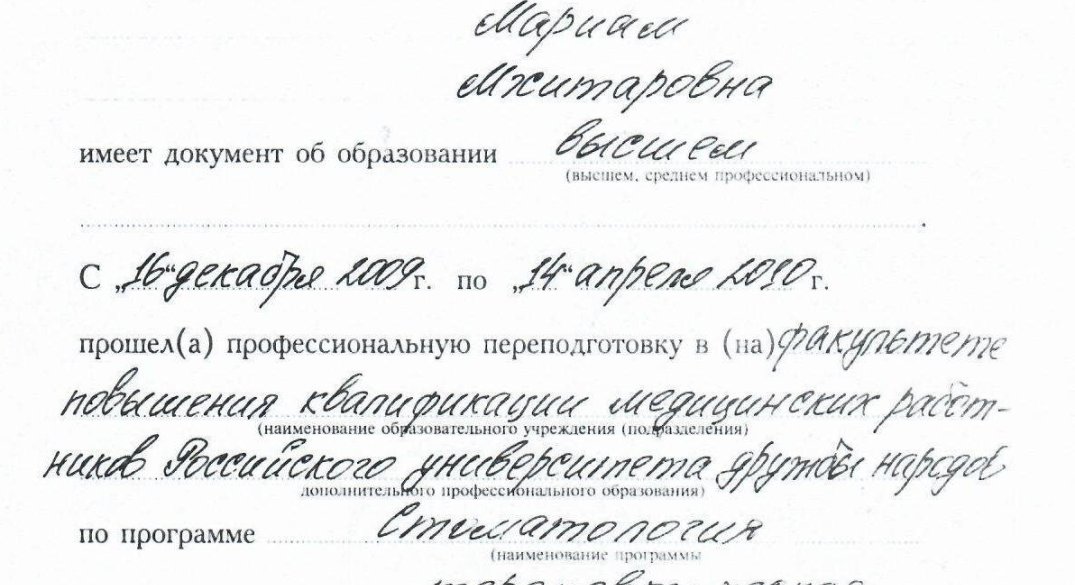 Мариам
Мхитаровна
имеет документ об образовании высшем
(высшем, среднем профессиональном)
С „16“ декабря 2009 г. по „14“ апреля 2010 г.
прошел(а) профессиональную переподготовку в (на) факультете
повышения квалификации медицинских работ-
(наименование образовательного учреждения (подразделения)
ников Российского университета дружбы народов
дополнительного профессионального образования)
по программе Стоматология
(наименование программы